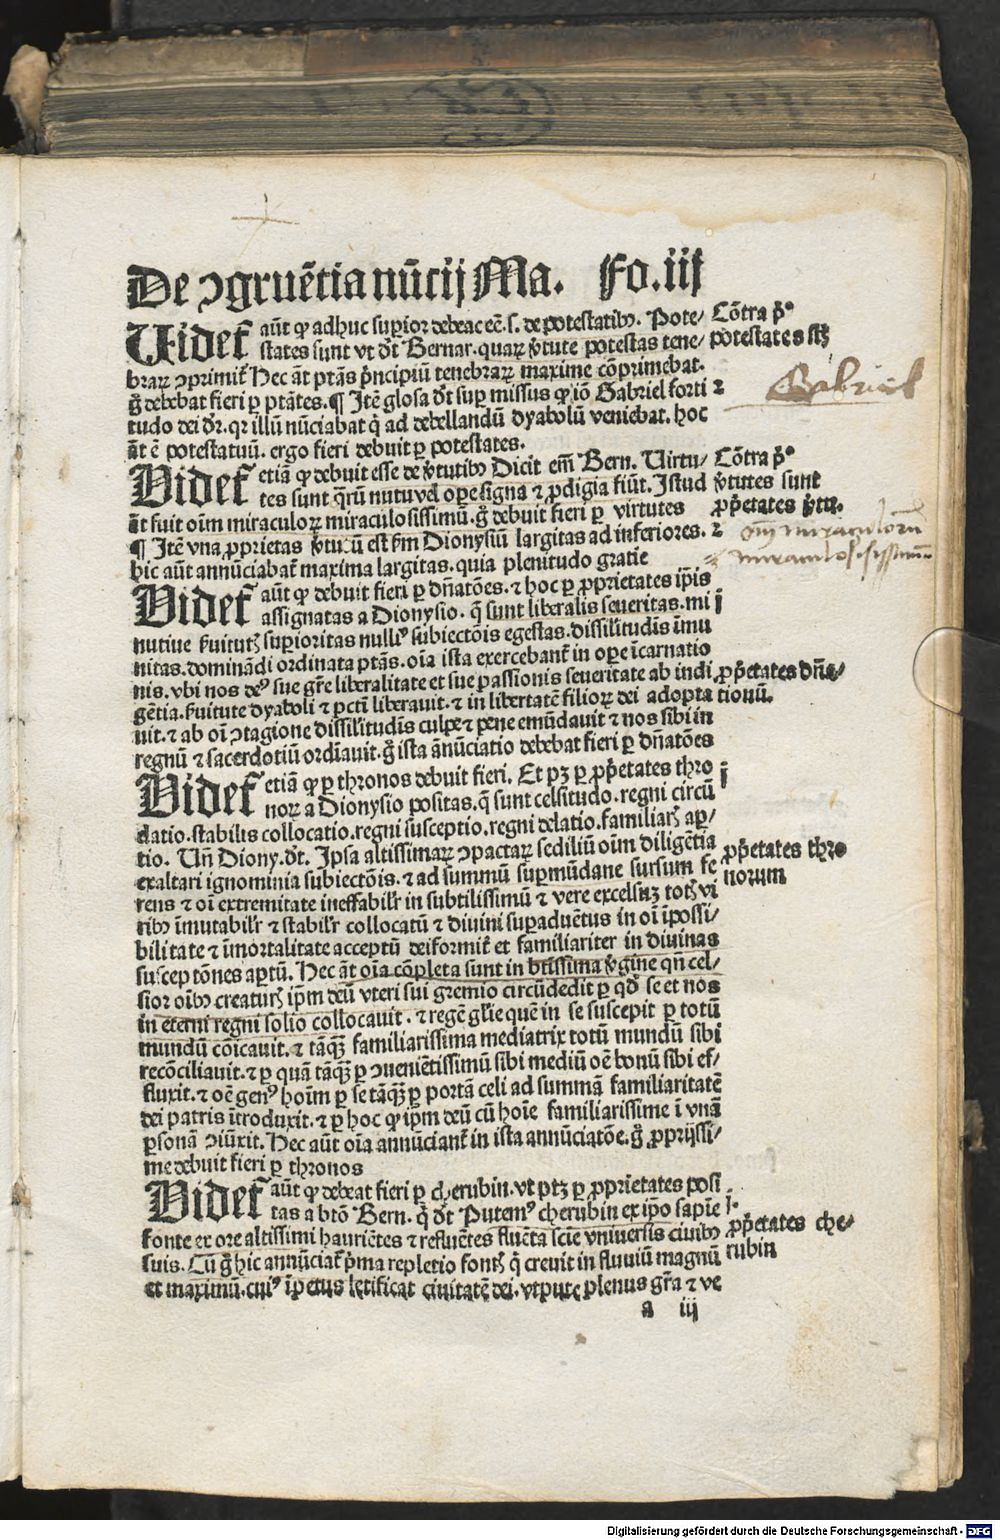 De ꝯgruẽtia nũcij Ma. Fo.iij
Uidet᷑ aũt ꝙ adhuc supior debeat eẽ.s. de potestatibꝰ. Pote-
states sunt vt dr̃t Bernar. quaꝝ v̾tute potestas tene-
braꝝ ꝯprimit᷑ Hec aũt ptãs p̃ncipiũ tenebraꝝ maxime cõprimebat.
g̃ debebat fieri p ptãtes. ¶ Itẽ glosa dr̃t sup missus ꝙ iõ Gabriel forti
tudo dei dr̃. qꝛ illũ nũciabat q̃ ad debellandũ dyabolũ veniebat. hoc
aũt ẽ potestatuũ. ergo fieri debuit p potestates.
Cõtra p̾ꝰ
potestates sũt
2
Gabriel
Videt᷑ etiã ꝙ debuit esse de v̾tutibꝰ Dicit em̃ Bern. Virtu-
tes sunt q̃rũ nutu vel ope signa ⁊ ꝓdigia fiũt. Istud
aũt fuit oĩm miraculoꝝ miraculosissimũ. g̃ debuit fieri p virtutes
¶ Itẽ vna ꝓprietas v̾tutũ est ẜm Dionysiũ largitas ad inferiores.
hic aũt annũciabat᷑ maxima largitas. quia plenitudo gratie
Cõtra p̾ꝰ
v̾tutes sunt
ꝓp̾etates v̾tu.
2
om̃ miraculorũ
miraculosissimũ
Videt᷑ aũt ꝙ debuit fieri p dñatões. ⁊ hoc p ꝓprietates ip̃is
assignatas a Dionysio. q̃ sunt liberalis seueritas. mi
nutiue ẜuitutꝭ supioritas nulliꝰ subiectõis egestas. dissilitudĩs ĩmu
nitas. dominãdi ordinata ptãs. oĩa ista exercebant᷑ in ope ĩcarnatio
nis. vbi nos deꝰ sue gr̃e liberalitate et sue passionis seueritate ab indi
gẽtia. ẜuitute dyaboli ⁊ pctĩ liberauit. ⁊ in libertatẽ filioꝝ dei adopta
uit. ⁊ ab oĩ ꝯtagione dissilitudĩs culpe ⁊ pene emũdauit ⁊ nos sibi in
regnũ ⁊ sacerdotiũ ordĩauit. g̃ ista ãnũciatio debebat fieri p dñatões
ꝓp̾etates dñã-
tionũ.
Videt᷑ etiã ꝙ p thronos debuit fieri. Et pꝫ p ꝓp̾etates thro
noꝝ a Dionysio positas. q̃ sunt celsitudo. regni circũ
datio. stabilis collocatio. regni susceptio. regni delatio. familiarꝭ ap-
tio. Uñ Diony. dr̃t. Ipsa altissimaꝝ ꝯpactaꝝ sediliũ oĩm diligẽtia
exaltari ignominia subiectõis. ⁊ ad summũ supmũdane sursum fe
rens ⁊ oĩ extremitate ineffabilr̃ in subtilissimũ ⁊ vere excelsũꝫ totꝭ vi
ribꝰ ĩmutabilr̃ ⁊ stabilr̃ collocatũ ⁊ diuini supaduẽtus in oĩ ĩpossi-
bilitate ⁊ ĩmortalitate acceptũ deiformit᷑ et familiariter in diuinas
suscep tõnes aptũ. Hec aũt oĩa cõpleta sunt in btĩssima v̾gine qñ cel-
sior oĩbꝰ creaturꝭ ip̃m deũ vteri sui gremio circũdedit p qđ se et nos
in eterni regni solio collocauit. ⁊ regẽ gl̃ie quẽ in se suscepit p totũ
mundũ cõicauit. ⁊ tãq̃ꝫ familiarissima mediatrix totũ mundũ sibi
recõciliauit. ⁊ p quã tãq̃ꝫ p ꝯueniẽtissimũ sibi mediũ oẽ bonũ sibi ef-
fluxit. ⁊ oẽ genꝰ hoĩm p se tãq̃ꝫ p portã celi ad summã familiaritatẽ
dei patris ĩtroduxit. ⁊ p hoc ꝙ ip̃m deũ cũ hoĩe familiarissime ĩ vnã
psonã ꝯiũxit. Hec aũt oĩa annũciant᷑ in ista annũciatõe. g̃ ꝓprijssi-
me debuit fieri p thronos
ꝓp̾etates thro
norum
Videt᷑ aũt ꝙ debeat fieri p cherubin. vt ptꝫ p ꝓprietates posi
tas a btõ Bern. q̃ dr̃t Putemꝰ cherubin ex ip̃o sapiẽ
fonte ex ore altissimi hauriẽtes ⁊ refluẽtes fluẽta scie vniuersis ciuibꝰ
suis. Cũ g̃ hic annũciat᷑ p̃ma repletio fontꝭ q̃ creuit in fluuiũ magnũ
et maximũ. cuiꝰ ĩpetus letificat ciuitatẽ dei. vtpute plenus gr̃a ⁊ ve
ꝓp̾etates che-
rubin
a iij
Digitalisierung gefördert durch die Deutsche Forschungsgemeinschaft - DFG